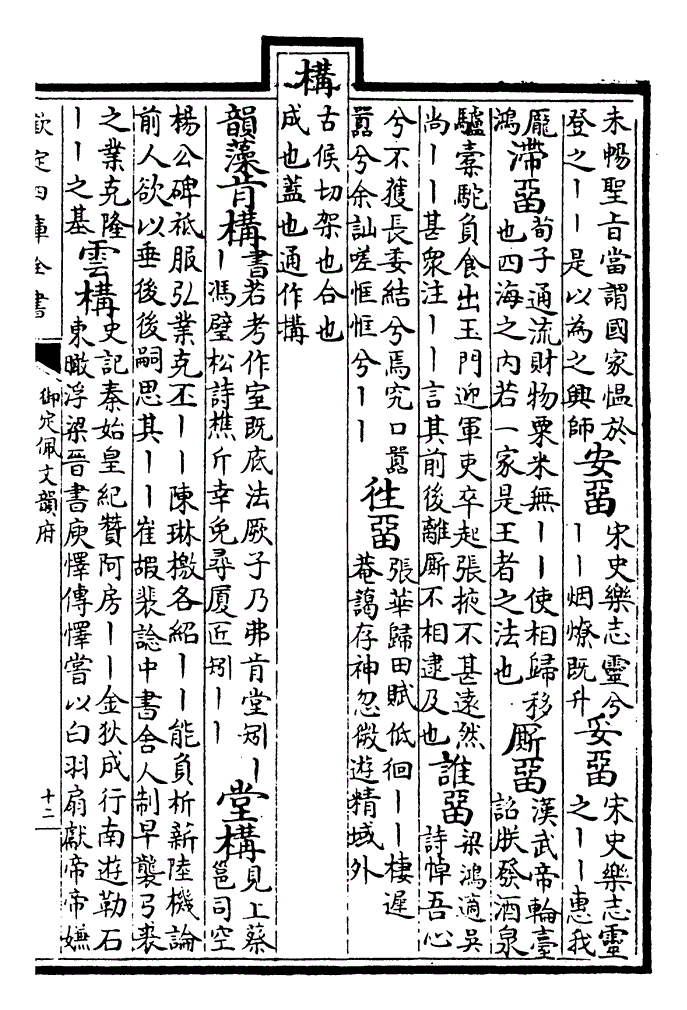 未暢聖㫖當謂國家愠於
登之丨丨是以為之興師
安畱
宋史樂志靈兮
丨丨烟燎既升
妥畱
宋史樂志靈
之丨丨惠我
龎
鴻
滯畱
荀子通流財物粟米無丨丨使相歸移
也四海之内若一家是王者之法也
厮畱
漢武帝輪臺
詔朕發酒泉
驢橐駝負食出玉門迎軍吏卒起張掖不甚逺然
尚丨丨甚衆注丨丨言其前後離厮不相逮及也
誰畱
梁鴻適吳
詩悼吾心
兮不獲長委結兮焉究口嚚
嚚兮余訕嗟恇恇兮丨丨
徃畱
張華歸田賦低徊丨丨棲遲
菴藹存神忽微遊精域外
構
古候切架也合也
成也蓋也通作搆
韻藻肯構
書若考作室既底法厥子乃弗肯堂矧丨
丨馮璧松詩樵斤幸免尋厦匠矧丨丨
堂構
見上蔡
邕司空
楊公碑祗服弘業克丕丨丨陳琳檄各紹丨丨能負析薪陸機論
前人欲以垂後後嗣思其丨丨崔嘏裴諗中書舍人制早襲弓裘
之業克隆
丨丨之基
雲構
史記秦始皇紀贊阿房丨丨金狄成行南遊勒石
東瞰浮梁晉書庾懌傳懌嘗以白羽扇獻帝帝嫌
欽定四庫全書
御定佩文韻府
十二